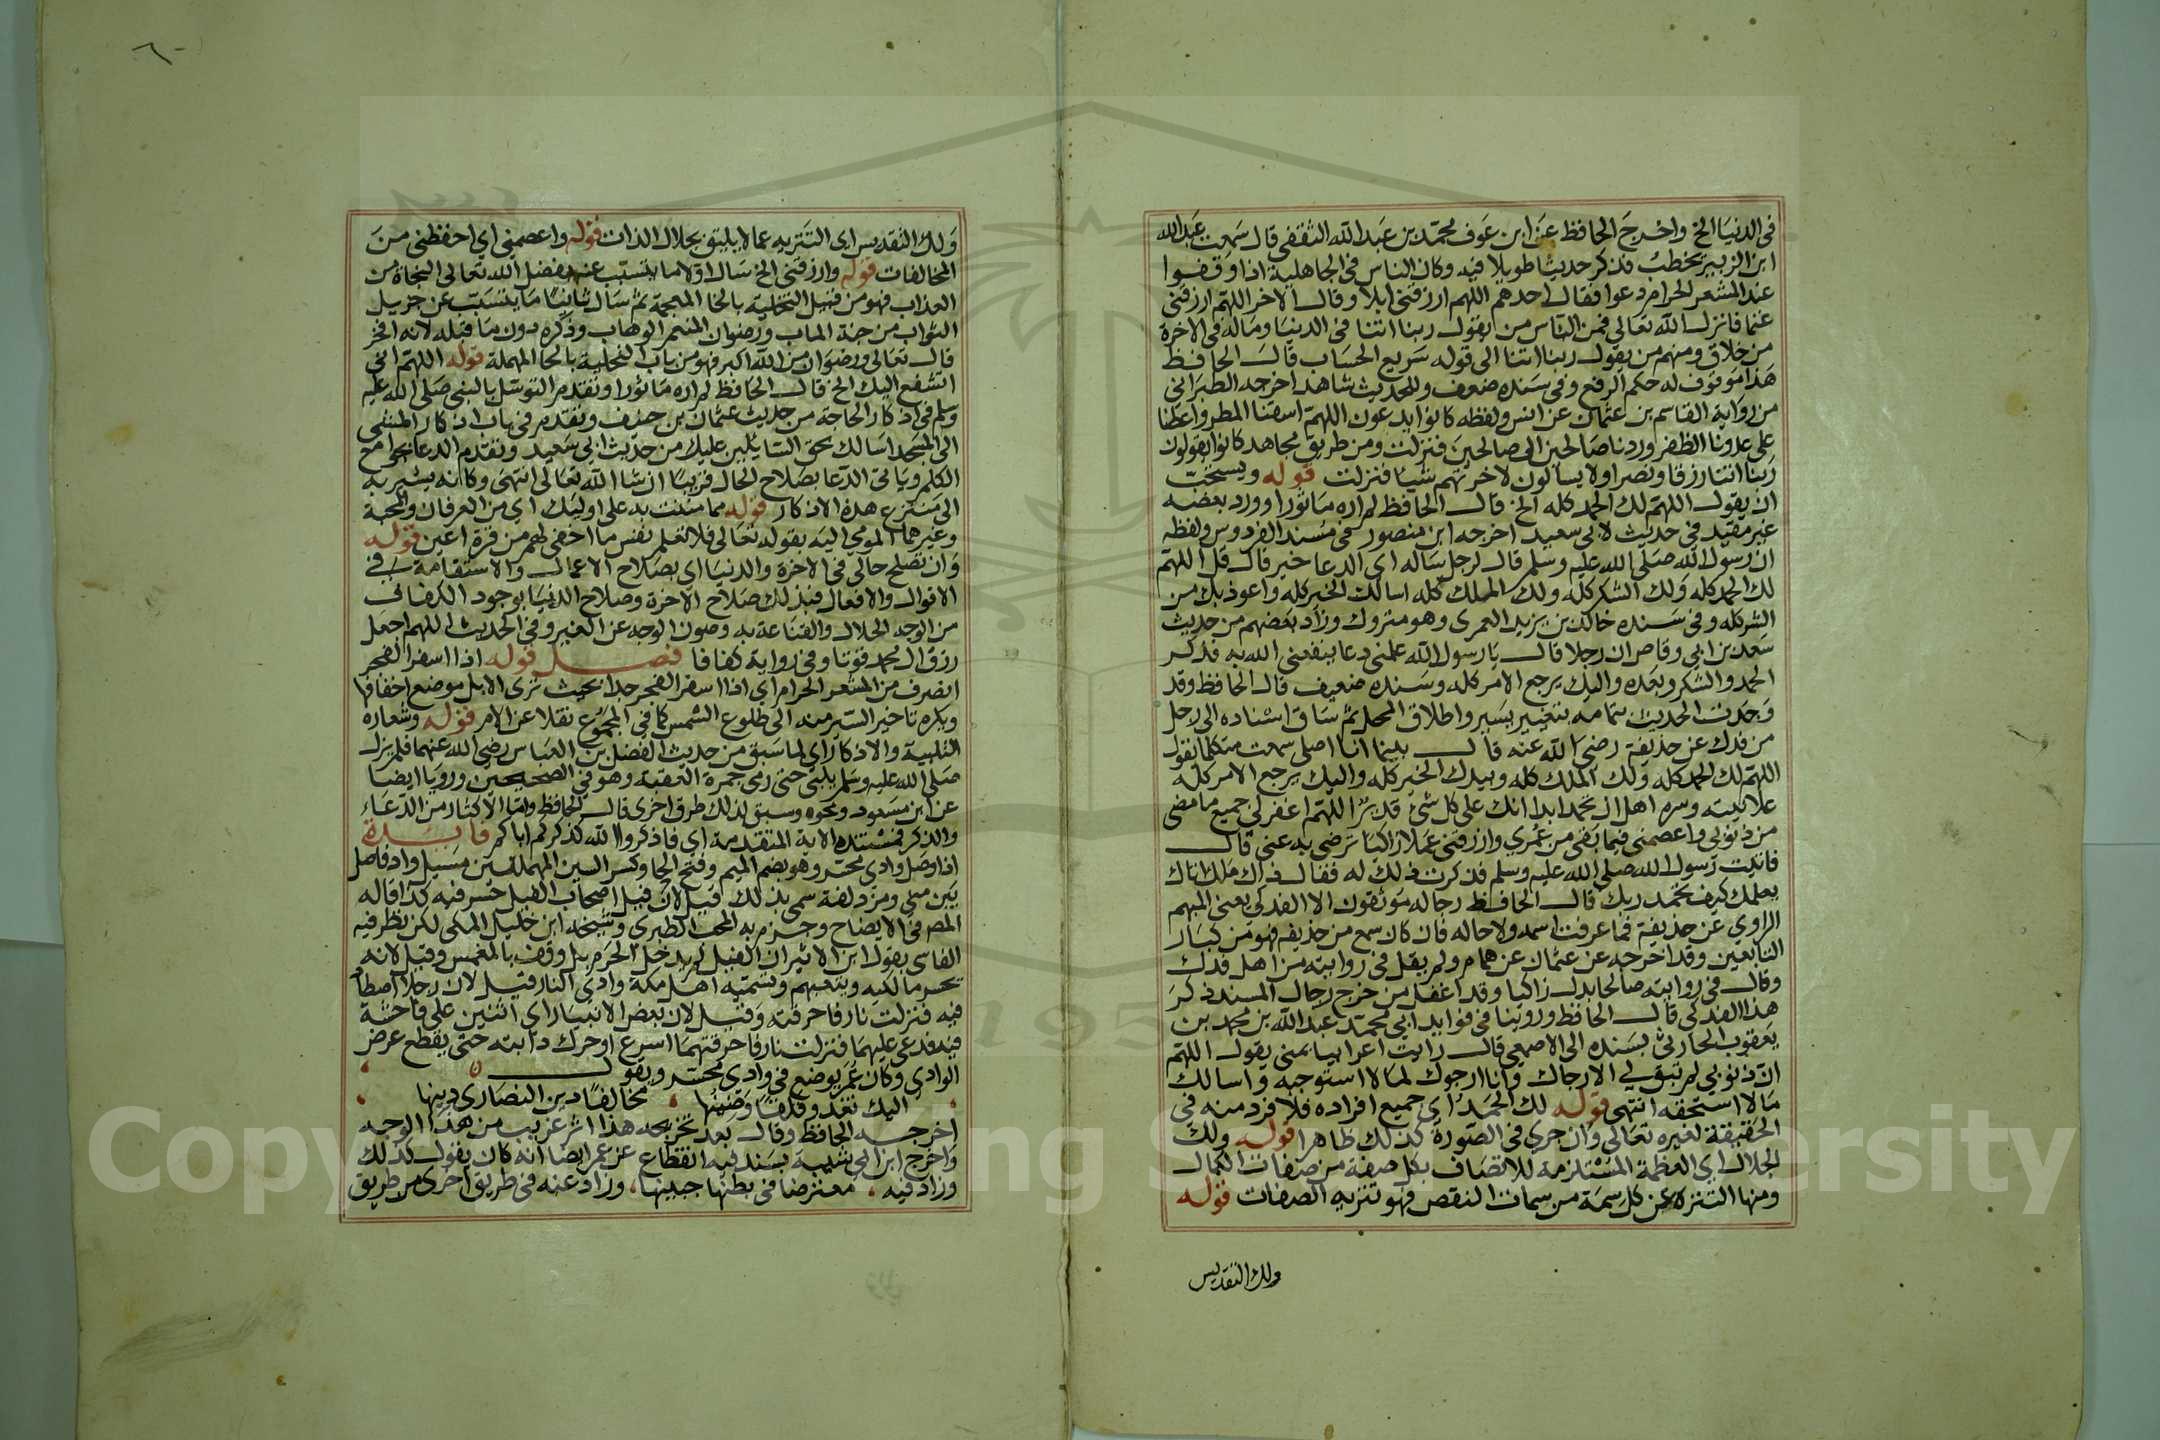 في الدنيا الخ واخرج الحافظ عن ابن عوف محمد بن عبد الله الثقفي قال سمعت عبد الله
ابن الزبير يخطب فذكر حديثا طويلا فيه وكان الناس في الجاهلية اذا وقفوا
عند المشعر الحرام دعوا فقال احدهم اللهم ارزقني ابلا وقال الاخر اللهم ارزقني
غنما فانزل الله تعالى فمن الناس من يقول ربنا اتنا في الدنيا وماله في الاخرة
من خلاق ومنهم من يقول ربنا اتنا الى قوله سريع الحساب قال الحافظ
هذا موقوف له حكم الرفع وفي سنده ضعف وللحديث شاهد اخرجه الطبراني
من رواية القاسم بن عثمان عن انس ولفظه كانوا يدعون اللهم اسقنا المطر واعطنا
على عدونا الظفر وردنا صالحين الى صالحين فنزلت ومن طريق مجاهد كانوا يقولون
ربنا اتنا رزقا ونصرا ولا يسالون لاخرتهم شيا فنزلت قوله ويستحب
ان يقول اللهم لك الحمد كله الخ قال الحافظ لم اره ماثورا وورد بعضه
غير مقيد في حديث لابي سعيد اخرجه ابن منصور في مسند الفردوس ولفظه
ان رسول الله صلى الله عليه وسلم قال لرجل ساله اي الدعا خير قال قل اللهم
لك الحمد كله ولك الشكر كله ولك الملك كله اسالك الخير كله واعوذ بك من
الشر كله وفي سنده خالد بن يزيد العمري وهو متروك وزاد بعضهم من حديث
سعد بن ابي وقاص ان رجلا قال يا رسول الله علمني دعا ينفعني الله به فذكر
الحمد والشكر وبعده واليك يرجع الامر كله وسنده ضعيف قال الحافظ وقد
وجدت الحديث بتمامه بتغيير يسير واطلاق المحل ثم ساق اسناده الى رجل
من فدك عن حذيفة رضي الله عنه قال بينما انا اصلي سمعت متكلما يقول
اللهم لك الحمد كله ولك الملك كله وبيدك الخير كله واليك يرجع الامر كله
علانيته وسره اهل ان تحمد ابدا انك على كل شي قدير اللهم اغفر لي جميع ما مضى
من ذنوبي واعصمني فيما بقي من عمري وارزقني عملا زاكيا ترضى به عني قال
فاتيت رسول الله صلى الله عليه وسلم فذكرت ذلك له فقال ذاك ملك اتاك
يعلمك كيف تحمد ربك قال الحافظ رجاله موثقون الا الفدكي يعني المبهم
الراوي عن حذيفة فما عرفت اسمه ولا حاله فان كان سمع من حذيفة فهو من كبار
التابعين وقد اخرجه عن عثمان عن همام ولم يقل في روايته من اهل فدك
وقال في روايته صالحا بدل زاكيا وقد اغفل من خرج رجال المسند ذكر
هذا الفدكي قال الحافظ وروينا في فوايد ابي محمد عبد الله بن محمد بن
يعقوب الحارثي بسنده الى الاصمعي قال رايت اعرابيا بمنى يقول اللهم
ان ذنوبي لم تبق لي الا رجاك وانا ارجوك لما لا استوجبه واسالك
ما لا استحقه انتهى قوله لك الحمد اي جميع افراده فلا فرد منه في
الحقيقة لغيره تعالى وان جرى في الصورة كذلك ظاهرا قوله ولك
الجلال اي العظمة المستلزمة للاتصاف بكل صفة من صفات الكمال
ومنها التنزه عن كل سمة من سمات النقص فهو تنزيه الصفات قوله
ولك التقديس
ولك التقديس اي التنزيه عما لا يليق بجلال الذات قوله واعصمني اي احفظني من
المخالفات قوله وارزقني الخ سال اولا ما يتسبب عنه بفضل الله تعالى النجاة من
العذاب فهو من قبيل التخلية بالخا المعجمة ثم سال ثانيا ما يتسبب عن جزيل
الثواب من جنة الماب ورضوان المنعم الوهاب وذكره دون ما قبله لانه افخر
قال تعالى ورضوان من الله اكبر فهو من باب التحلية بالحا المهملة قوله اللهم اني
اتشفع اليك الخ قال الحافظ لم اره ماثورا وتقدم التوسل بالنبي صلى الله عليه
وسلم في اذكار الحاجة من حديث عثمان بن حنيف وتقدم في باب اذكار المشي
الى المسجد اسالك بحق السايلين عليك من حديث ابي سعيد وتقدم الدعا بجوامع
الكلم وياتي الدعا بصلاح الحال قريبا ان شا الله تعالى انتهى وكانه يشير به
الى منتزع هذه الاذكار قوله مما مننت به على اوليك اي من العرفان والمحبة
وغيرهما المومى اليه بقوله تعالى فلا تعلم نفس ما اخفي لهم من قرة اعين قوله
وان تصلح حالي في الاخرة والدنيا اي بصلاح الاعمال والاستقامة في
الاقوال والافعال فبذلك صلاح الاخرة وصلاح الدنيا بوجود الكفاف
من الوجه الحلال والقناعة به وصون الوجه عن الغير وفي الحديث اللهم اجعل
رزق ال محمد قوتا وفي رواية كفافا فصل قوله اذا اسفر الفجر
انصرف من المشعر الحرام اي اذا اسفر الفجر جدا بحيث ترى الابل موضع اخفافها
ويكره تاخير السير منه الى طلوع الشمس كما في المجموع نقلا عن الام قوله وشعاره
التلبية والاذكار اي لما سبق من حديث الفضل بن العباس رضي الله عنهما فلم يزل
صلى الله عليه وسلم يلبي حتى رمى جمرة العقبة وهو في الصحيحين ورويا ايضا
عن ابن مسعود ونحوه وسبق لذلك طرق اخرى قال الحافظ واما الاكثار من الدعاء
والذكر فمستنده الاية المتقدمة اي فاذكروا الله كذكركم اباكم فايدة
اذا وصل وادي محسر وهو بضم الميم وفتح الحا وكسر السين المهملتين مسيل واد فاصل
بين منى ومزدلفة سمي بذلك قيل لان فيل اصحاب الفيل حسر فيه كذا قاله
المص في الايضاح وجزم به المحب الطبري وشيخه ابن خليل المكي لكن نظر فيه
الفاسي بقول ابن الاثير ان الفيل لم يدخل الحرم بل وقف بالمغمس وقيل لانه
يحسر سالكيه ويتعبهم وتسميه اهل مكة وادي النار قيل لان رجلا اصطاد
فيه فنزلت نار فاحرقته وقيل لان بعض الانبيا راى اثنين على فاحشة
فيه فدعى عليهما فنزلت نار فاحرقتهما اسرع او حرك دابته حتى يقطع عرض
الوادي وكان عمر يوضع في وادي محسر ويقول
اليك تغدو قلقا وضينها مخالفا دين النصارى دينها
اخرجه الحافظ وقال بعد تخريجه هذا اثر غريب من هذا الوجه
واخرج ابن ابي شيبة بسند فيه انقطاع عن عمر ايضا انه كان يقول كذلك
وزاد فيه معترضا في بطنها جنينها وزاد عنه في طريق اخرى من طريق
Copyright © King Saud University
195